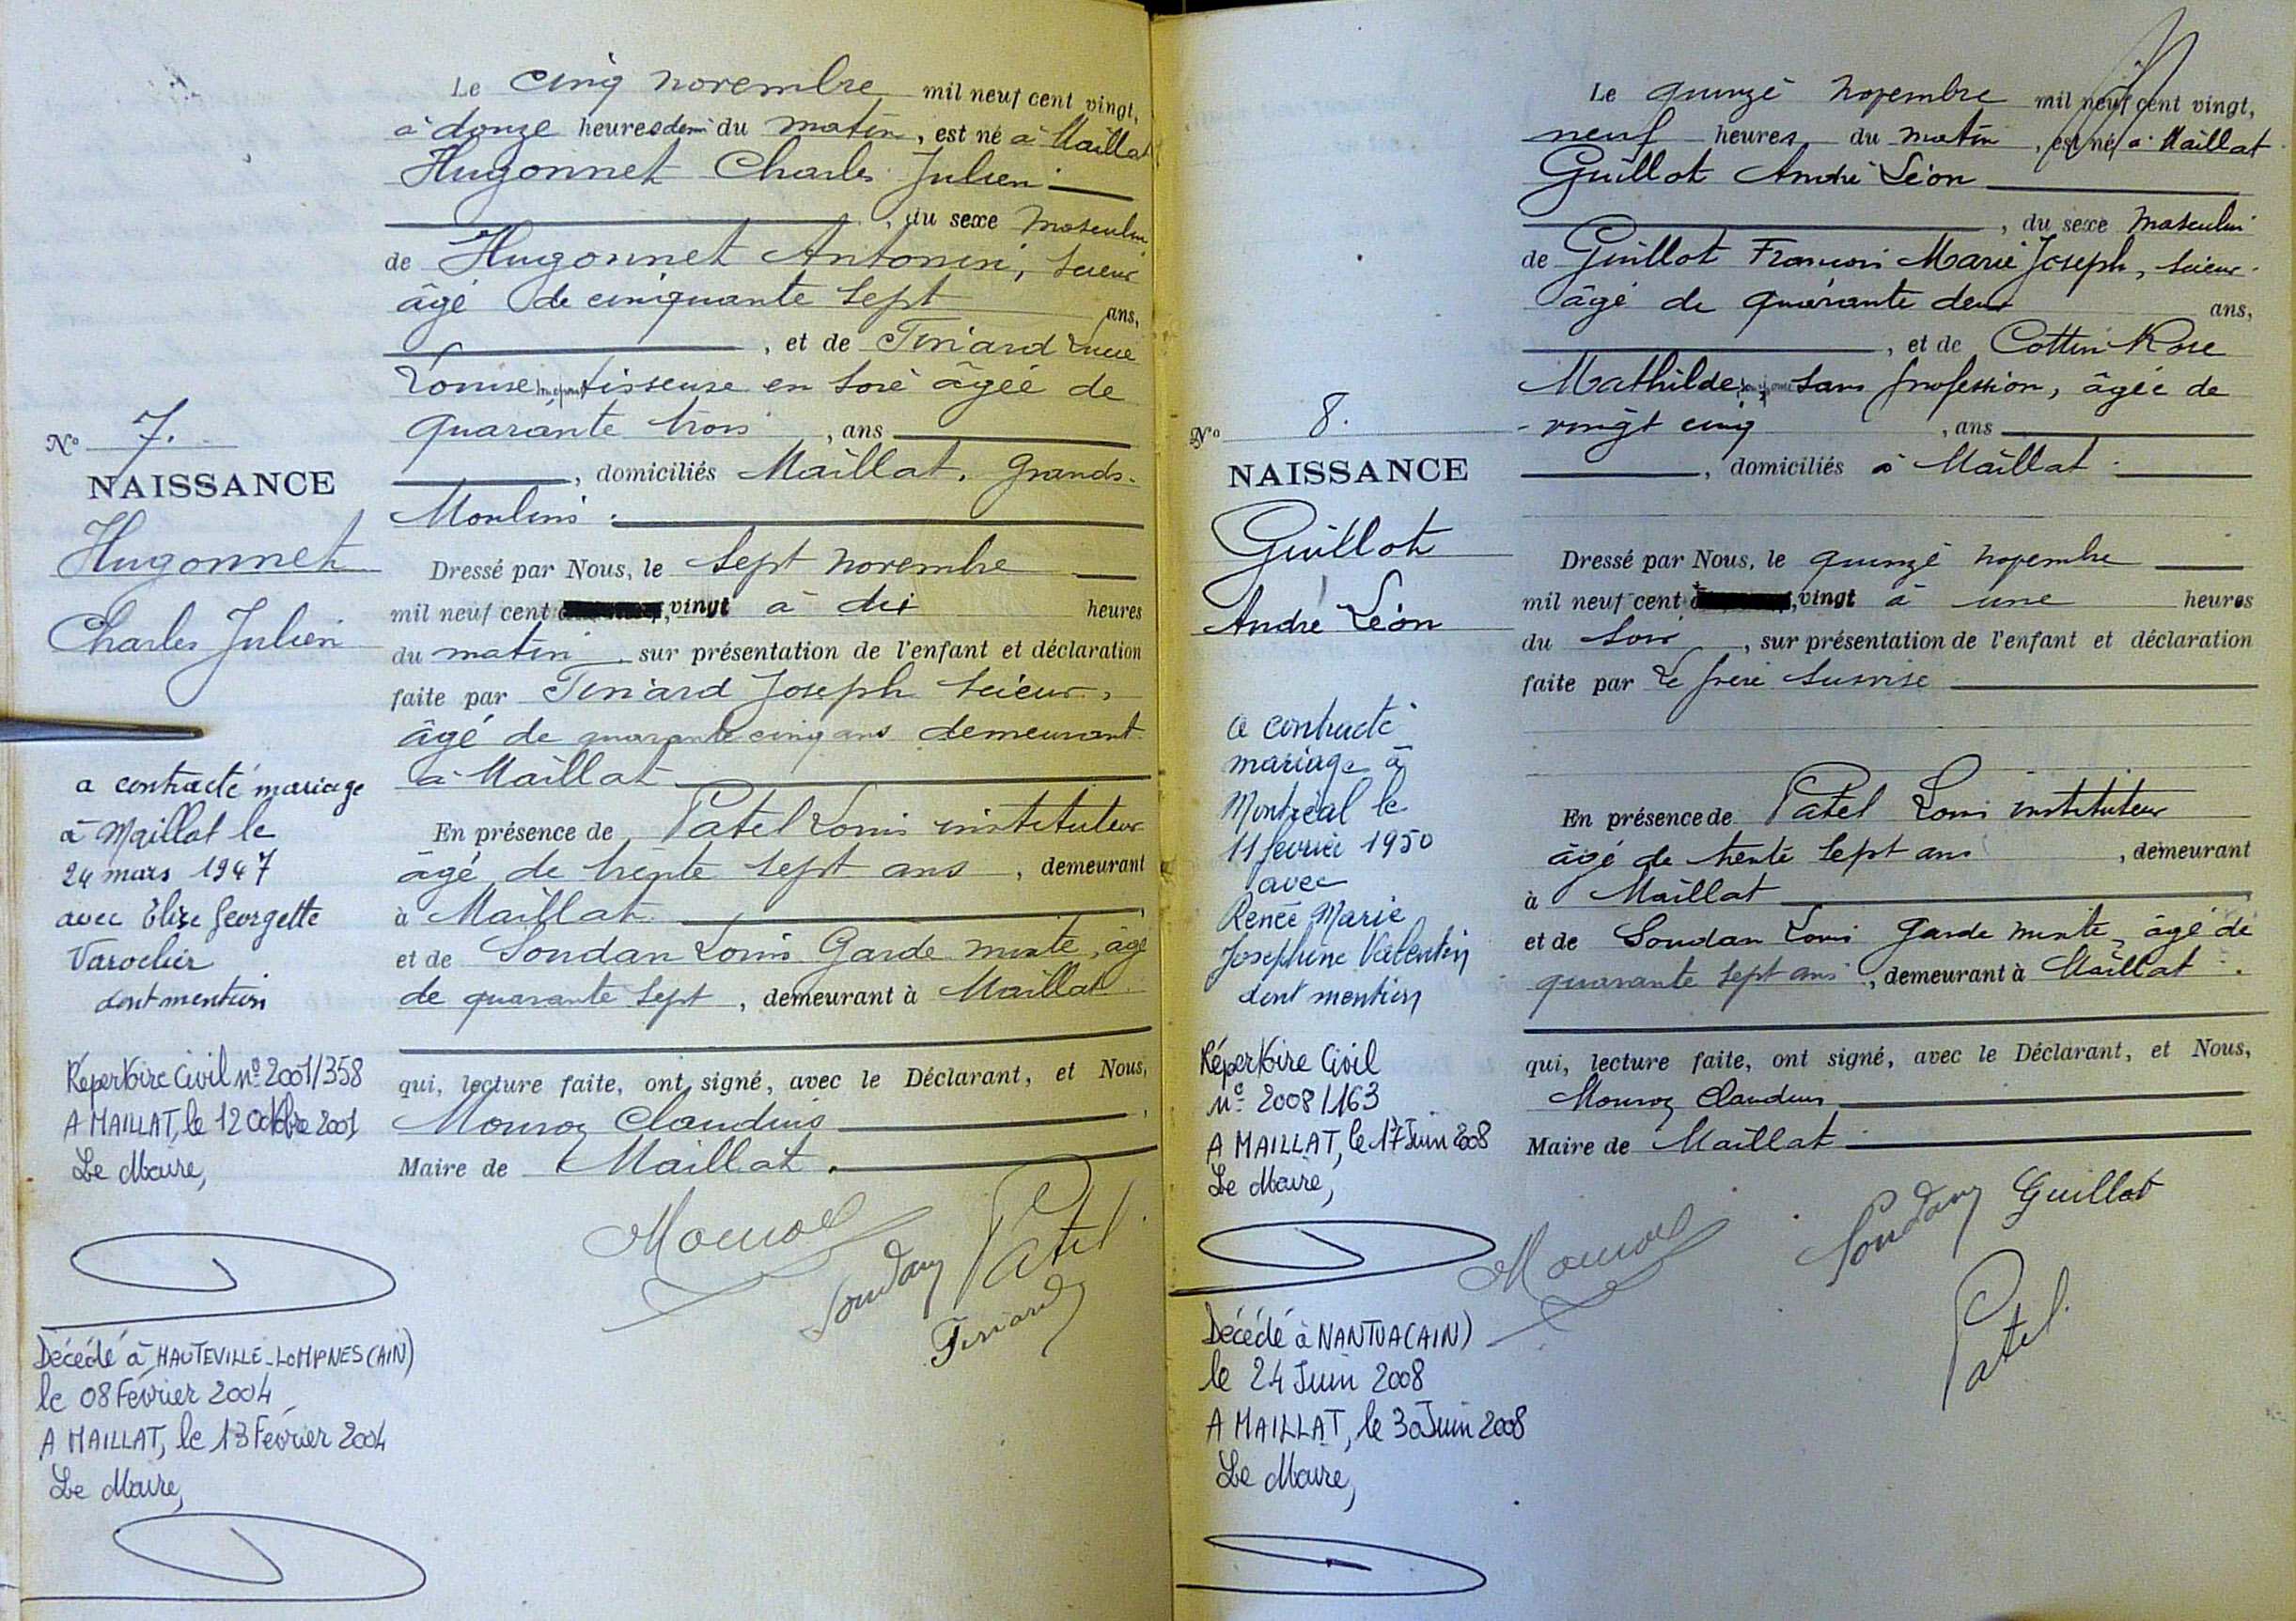 Le cinq novembre mil neuf cent vingt,
à donze heures demi du matin, est né à Maillat
Hugonnet Charles Julien
, du sexe masculin
de Hugonnet Antonin, scieur
âgé de cinquante sept ans,
, et de Tinard Lucie
Louise, tisseuse en soie âgée de
quarante trois, ans
, domiciliés Maillat, Grands-
Moulins.
N° 7.
NAISSANCE
Hugonnet
Charles Julien
Dressé par Nous, le sept novembre
mil neuf cent vingt à dix heures
du matin sur présentation de l'enfant et déclaration
faite par Tinard Joseph scieur,
âgé de quarante cinq ans demeurant
à Maillat
En présence de Patel Louis instituteur
âgé de trente sept ans, demeurant
à Maillat
et de Soudan Louis Garde mixte, âgé
de quarante sept, demeurant à Maillat
qui, lecture faite, ont signé, avec le Déclarant, et Nous,
Mouroz Claudius
Maire de Maillat.
Mouroz
Soudan
Patel
Tinard
a contracté mariage
à Maillat le
24 mars 1947
avec Elise Georgette
Varochier
dont mention
Répertoire Civil n° 2001/358
A MAILLAT, le 12 Octobre 2001
Le Maire,
Décédé à HAUTEVILLE-LOMPNES (AIN)
le 08 Février 2004
A MAILLAT, le 13 Février 2004
Le Maire,
Le quinze novembre mil neuf cent vingt,
neuf heures du matin, est né à Maillat
Guillot André Léon
, du sexe masculin
de Guillot François Marie Joseph, scieur
âgé de quarante deux ans,
, et de Cottin Rose
Mathilde, sans profession, âgée de
vingt cinq, ans
, domiciliés à Maillat.
N° 8.
NAISSANCE
Guillot
André Léon
Dressé par Nous, le quinze novembre
mil neuf cent vingt à une heures
du soir, sur présentation de l'enfant et déclaration
faite par Le père susvisé
En présence de Patel Louis instituteur
âgé de trente sept ans, demeurant
à Maillat
et de Soudan Louis Garde mixte, âgé de
quarante sept ans, demeurant à Maillat.
qui, lecture faite, ont signé, avec le Déclarant, et Nous,
Mouroz Claudius
Maire de Maillat
Mouroz
Soudan
Guillot
Patel
a contracté
mariage à
Montréal le
11 février 1950
avec
Renée Marie
Josephine Valentin
dont mention
Répertoire Civil
n° 2008/163
A MAILLAT, le 17 Juin 2008
Le Maire,
Décédé à NANTUA (AIN)
le 24 Juin 2008
A MAILLAT, le 30 Juin 2008
Le Maire,